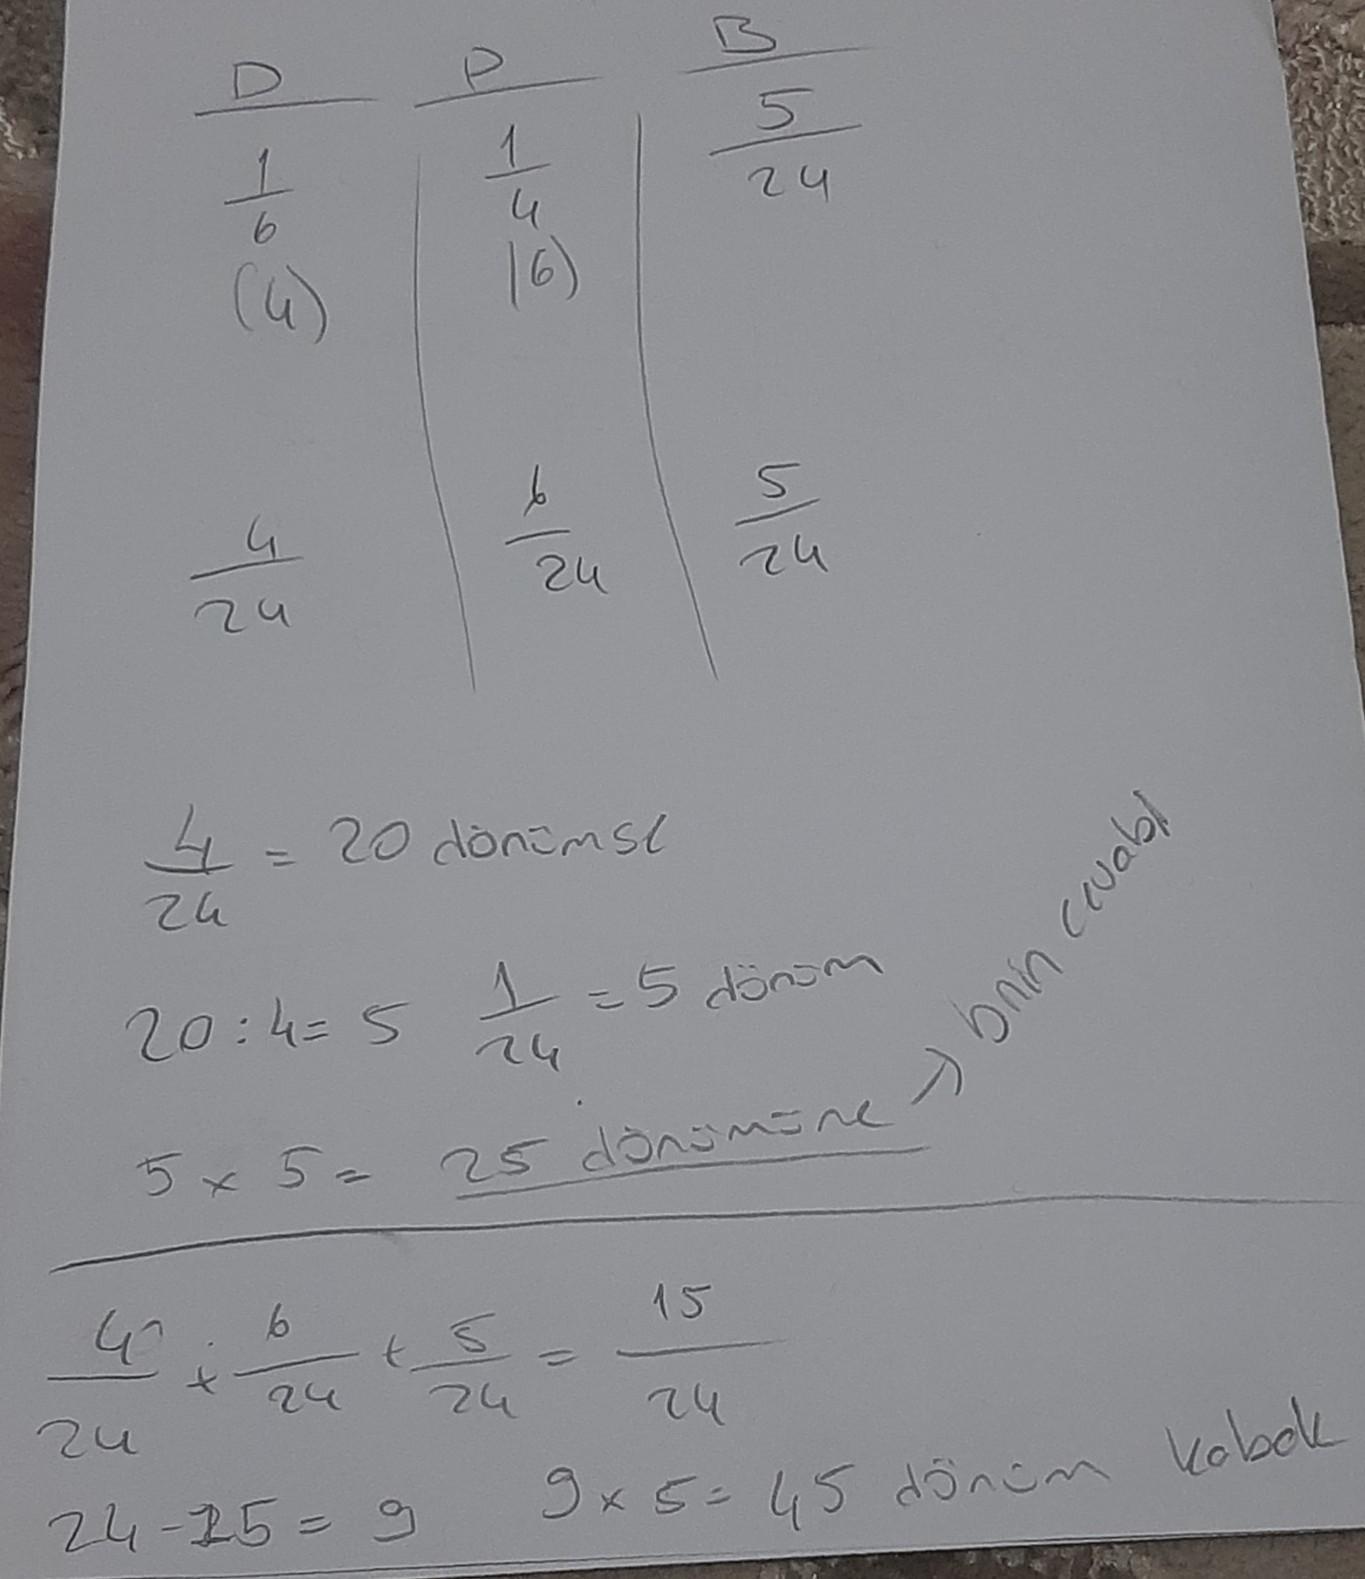 D P B
1/6 1/4 5/24
(4) (6)
4/24 6/24 5/24
4/24 = 20 dönümse
20:4= 5 1/24 = 5 dönüm
5 x 5 = 25 dönümüne → bnin cevabı
4/24 + 6/24 + 5/24 = 15/24
24-15 = 9 9 x 5 = 45 dönüm kabak